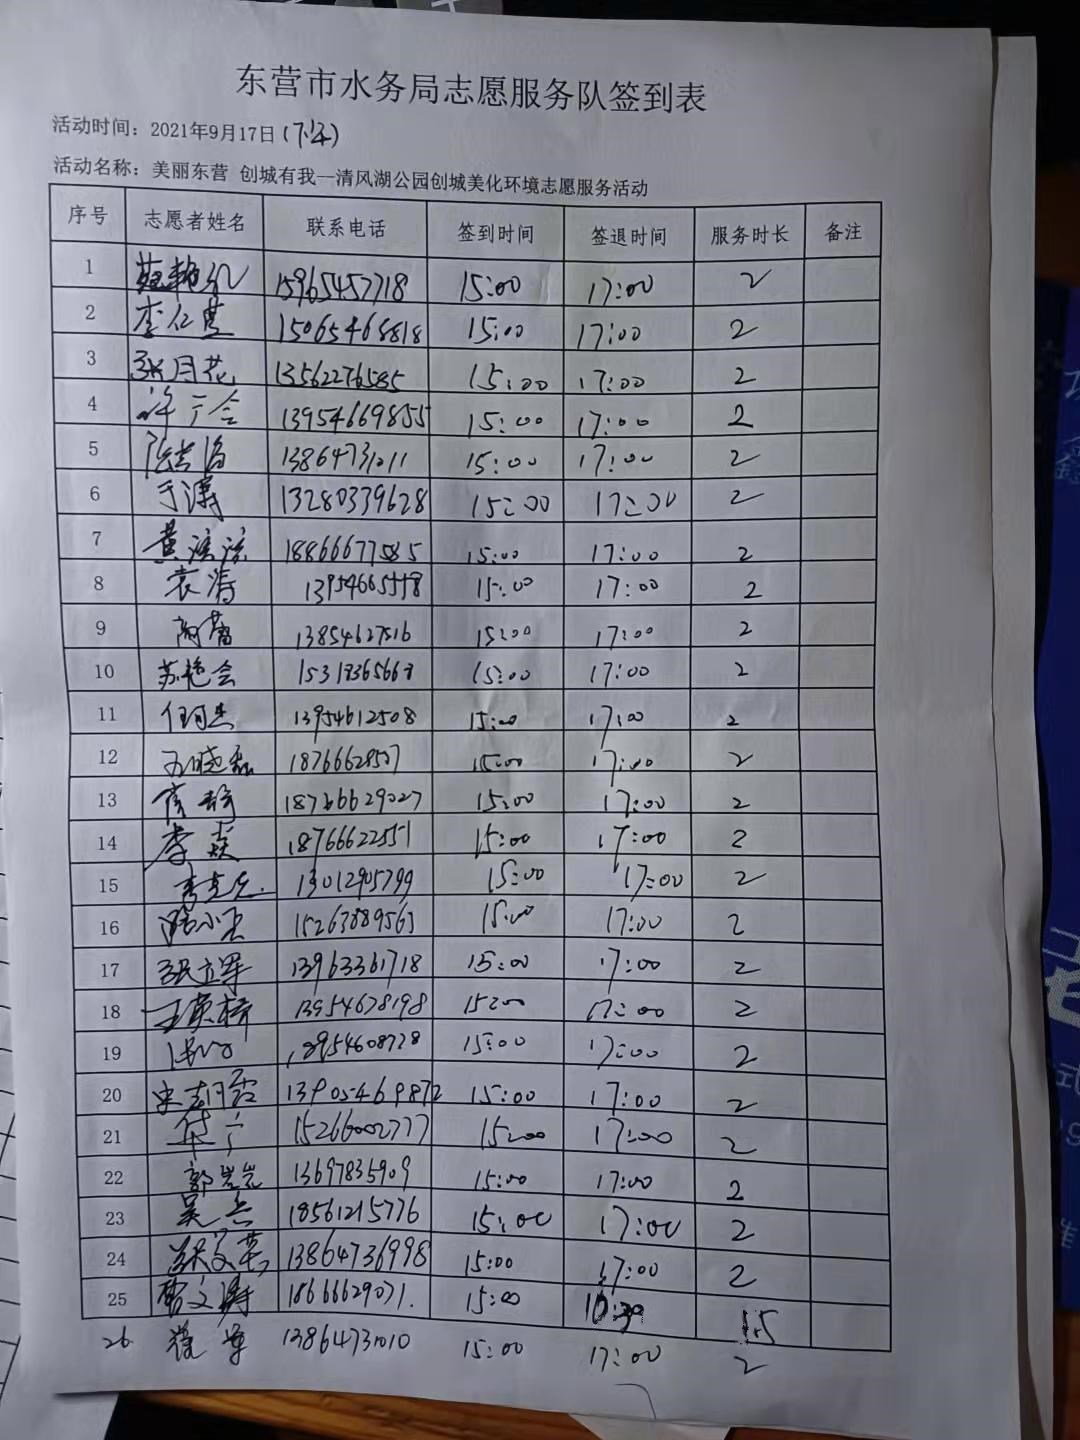 东营市水务局志愿服务队签到表
活动时间：2021年9月17日(下午)
活动名称：美丽东营 创城有我—清风湖公园创城美化环境志愿服务活动
序号 志愿者姓名 联系电话 签到时间 签退时间 服务时长 备注
1 15965457718 15:00 17:00 2
2 15065468818 15:00 17:00 2
3 张月花 13562276585 15:00 17:00 2
4 许广会 13954669855 15:00 17:00 2
5 13864731211 15:00 17:00 2
6 于涛 13280339628 15:00 17:00 2
7 黄法法 18866677585 15:00 17:00 2
8 袁涛 13954665558 15:00 17:00 2
9 高蕾 13854627516 15:00 17:00 2
10 苏艳会 15318365668 15:00 17:00 2
11 13954612508 15:00 17:00 2
12 王晓磊 18766628507 15:00 17:00 2
13 18766629027 15:00 17:00 2
14 李焱 18766622551 15:00 17:00 2
15 13012905799 15:00 17:00 2
16 路小玉 15263889563 15:00 17:00 2
17 张立军 13963361718 15:00 17:00 2
18 王英桥 13954678198 15:00 17:00 2
19 18954608728 15:00 17:00 2
20 宋朝霞 13905469872 15:00 17:00 2
21 15266002777 15:00 17:00 2
22 郭岩岩 13697835909 15:00 17:00 2
23 吴兵 18561215776 15:00 17:00 2
24 张文英 13864736998 15:00 17:00 2
25 曹文涛 18666629071. 15:00 1.5
26 13864731010 15:00 17:00 2